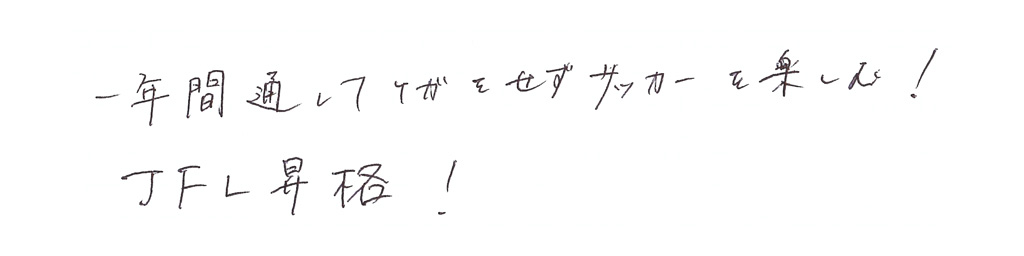 一年間通してケガをせずサッカーを楽しむ!
JFL昇格!